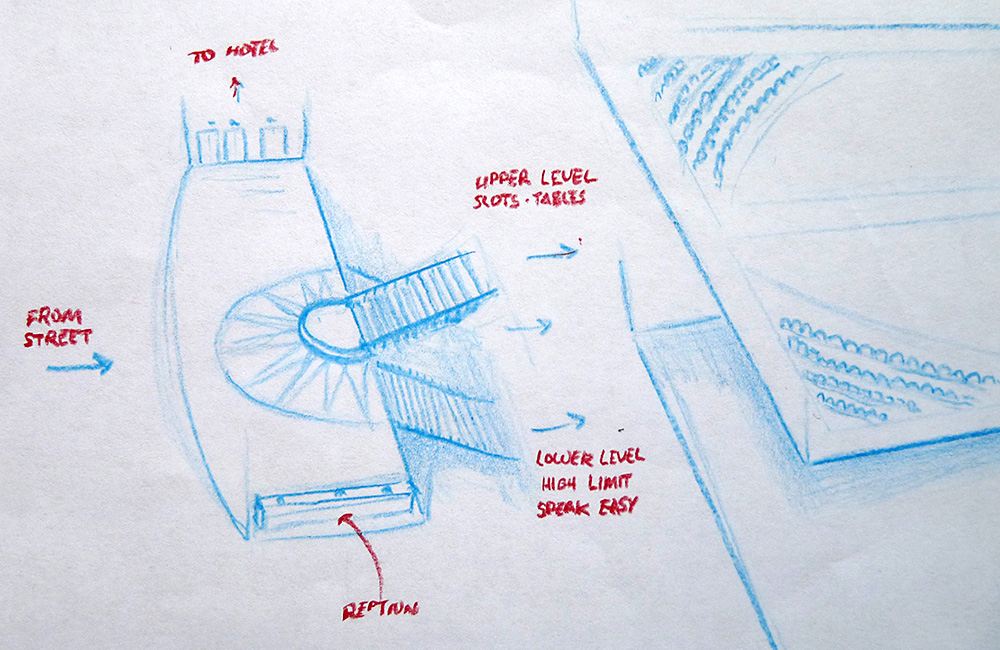 TO HOTEL
UPPER LEVEL
SLOTS · TABLES
FROM
STREET
LOWER LEVEL
HIGH LIMIT
SPEAK EASY